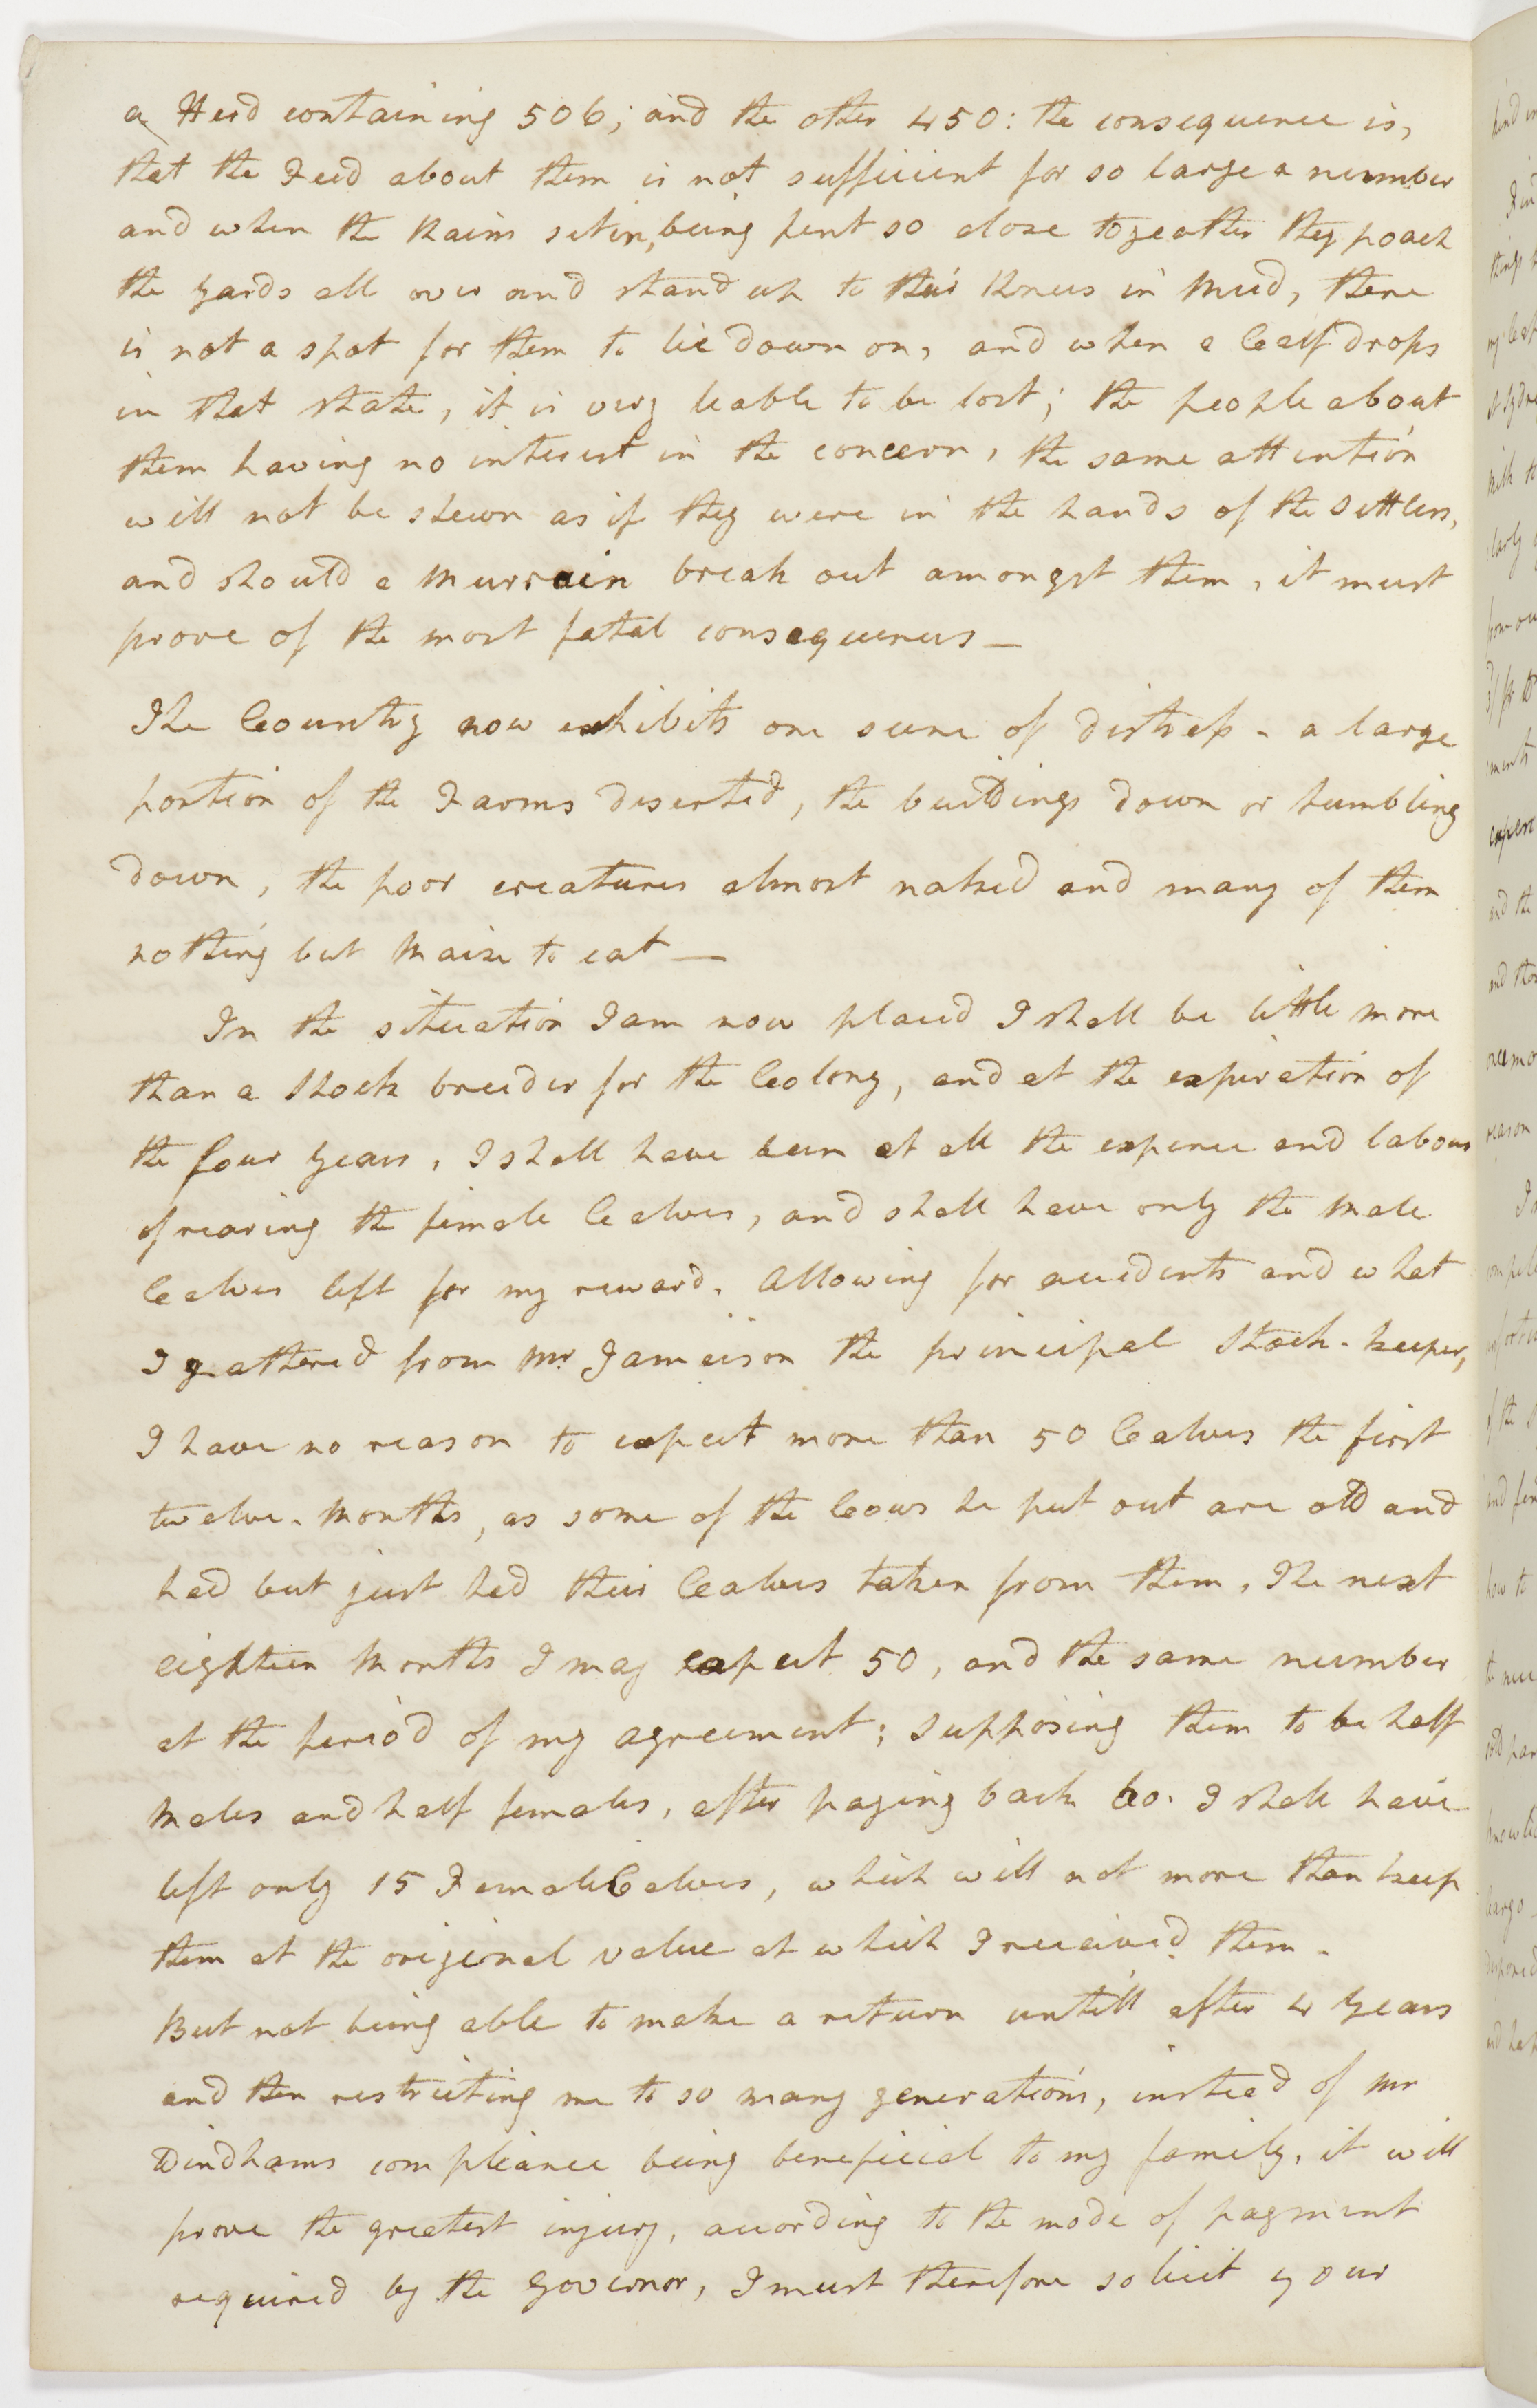 a Herd containing 506; and the other 450: the consequence is,
that the Feed about them is not sufficient for so large a number
and when the Rains set in, being pent so close togeather they poach
the yards all over and stand up to their Knees in Mud, there
is not a spot for them to lie down on, and when a Calf drops
in that state, it is very leable to be lost; the people about
them having no interest in the concern, the same attention
will not be shewn as if they were in the hands of the settlers,
and should a Murrain break out amongst them, it must
prove of the most fatal consequences —
The Country now exhibits one scene of distress - a large
portion of the Farms deserted, the buildings down or tumbling
down, the poor creatures almost naked and many of them
nothing but Maize to eat —
In the situation I am now placed I shall be little more
than a Stock breeder for the Colony, and at the expiration of
the four years, I shall have been at all the expence and labour
of rearing the female Calves, and shall have only the Male
Calves left for my reward. Allowing for accidents and what
I gathered from Mr Jameison the principal Stock-keeper,
I have no reason to expect more than 50 Calves the first
twelve-Months, as some of the Cows he put out are old and
had but just had their Calves taken from them, The next
eighteen Months I may expect 50, and the same number
at the period of my agreement; supposing them to be half
Males and half females, after paying back 60. I shall have
left only 15 Female Calves, which will not more than keep
them at the original value at which I received them.
But not being able to make a return untill after 4 years
and then restricting me to so many generations, instead of Mr
Windhams compliance being beneficial to my family, it will
prove the greatest injury, according to the mode of payment
required by the Governor, I must therefore solicit your